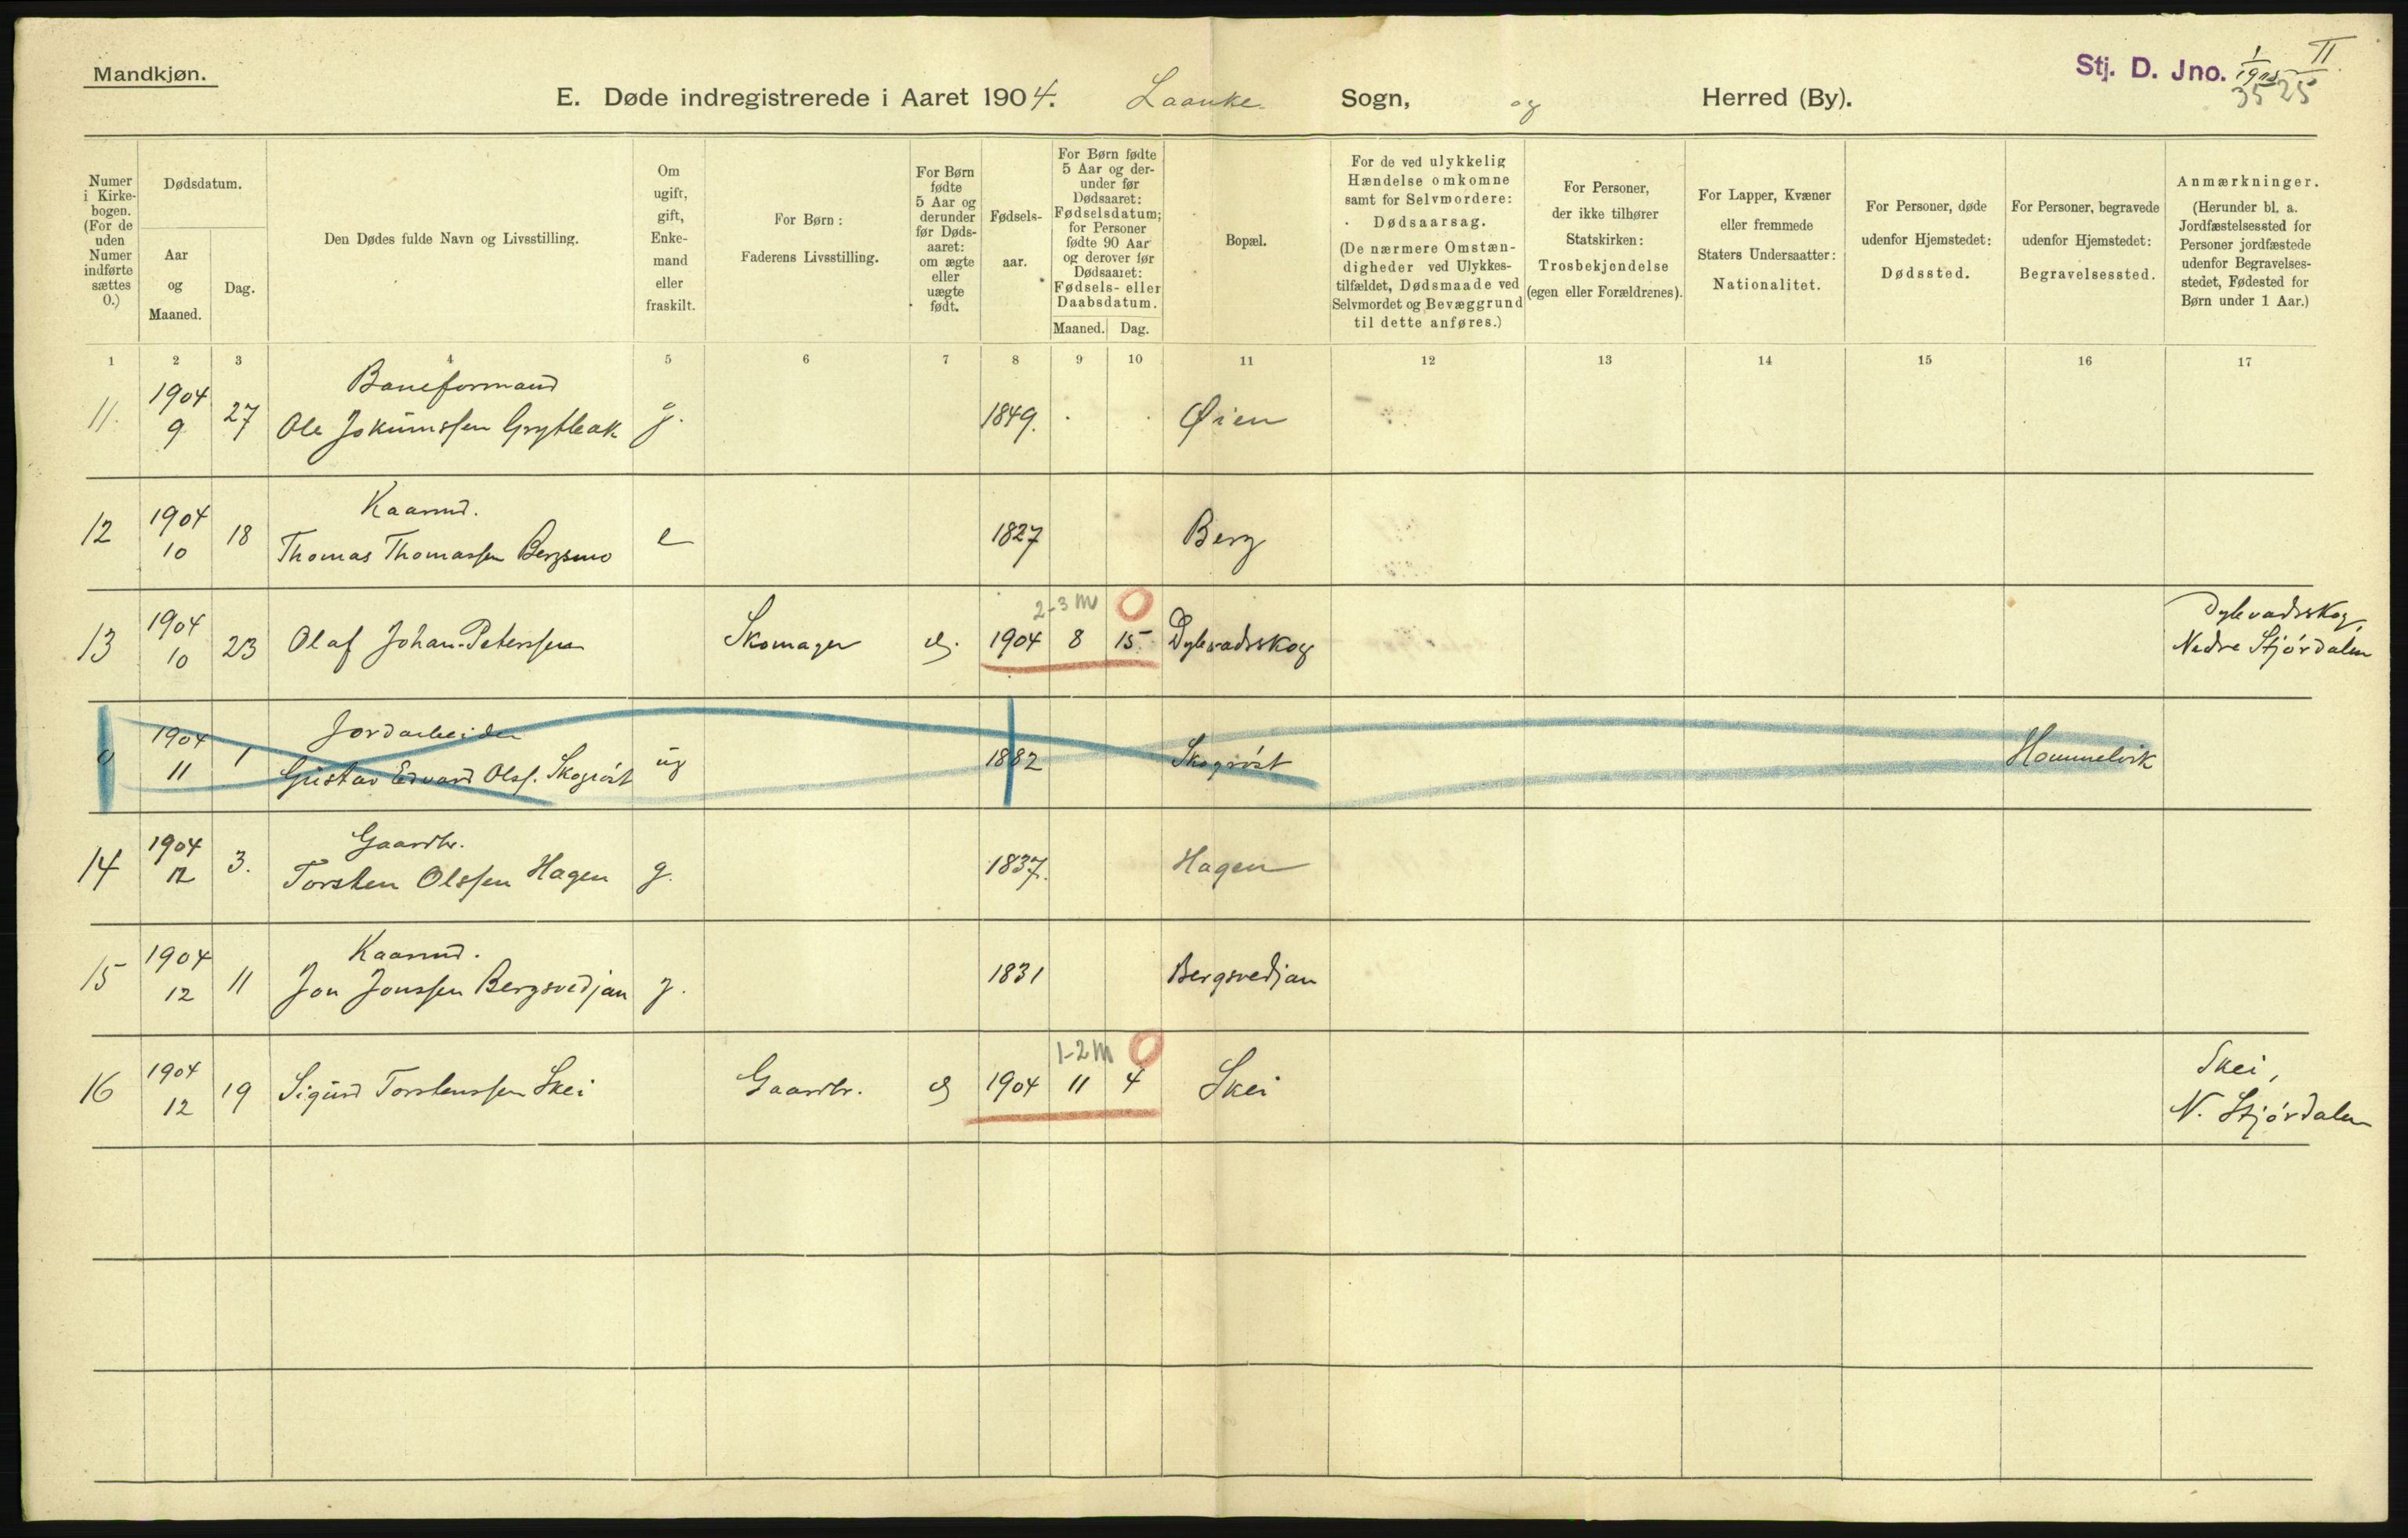 Mandkjøn.
Stj. D. Jno. 1/1905 II
35 25
E. Døde indregistrerede i Aaret 1904. Laanke Sogn, og Herred (By).
Numer i Kirke-bogen. (For de uden Numer indførte sættes 0.)
Dødsdatum.
Aar og Maaned.
Dag.
Den Dødes fulde Navn og Livsstilling.
Om ugift, gift, Enke-mand eller fraskilt.
For Børn: Faderens Livsstilling.
For Børn fødte 5 Aar og derunder før Døds-aaret: om ægte eller uægte født.
Fødsels-aar.
For Børn fødte 5 Aar og der-under før Dødsaaret: Fødselsdatum; for Personer fødte 90 Aar og derover før Dødsaaret: Fødsels- eller Daabsdatum.
Maaned. Dag.
Bopæl.
For de ved ulykkelig Hændelse omkomne samt for Selvmordere: Dødsaarsag. (De nærmere Omstæn-digheder ved Ulykkes-tilfældet, Dødsmaade ved Selvmordet og Bevæggrund til dette anføres.)
For Personer, der ikke tilhører Statskirken: Trosbekjendelse (egen eller Forældrenes).
For Lapper, Kvæner eller fremmede Staters Undersaatter: Nationalitet.
For Personer, døde udenfor Hjemstedet: Dødssted.
For Personer, begravede udenfor Hjemstedet: Begravelsessted.
Anmærkninger. (Herunder bl. a. Jordfæstelsessted for Personer jordfæstede udenfor Begravelses-stedet, Fødested for Børn under 1 Aar.)
1 2 3 4 5 6 7 8 9 10 11 12 13 14 15 16 17
Baneformand
11. 1904 9 27 Ole Jokumssen Grytbak g. 1849. Øien
Kaarmd.
12 1904 10 18 Thomas Thomassen Bergsmo e 1827 Berg
2-3 m 0
13 1904 10 23 Olaf Johan Peterssen Skomager æ. 1904 8 15. Dylvadsskog Dylevadsskog, Nedre Stjørdalen
Jordarbeider
0 1904 11 1 Gustav Edvard Olss. Skogrøst ug 1882 Skogrøst Hommelvik
Gaardbr.
14 1904 12 3. Torsten Olssen Hagen g. 1837. Hagen
Kaarmd.
15 1904 12 11 Jon Jonssen Bergsvedjan g. 1831 Bergsvedjan
1-2 m 0
16 1904 12 19 Sigurd Torstenssen Skei Gaardbr. æ 1904 11 4 Skei Skei, N. Stjørdalen